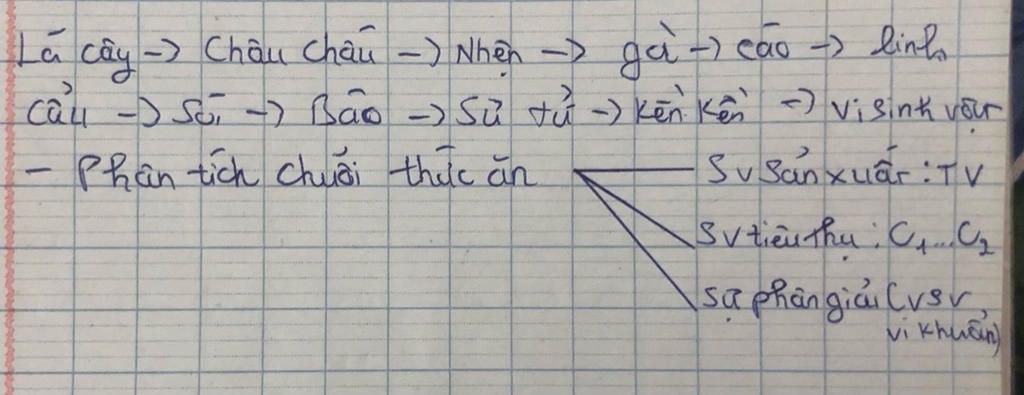 Lá cây -> Châu chấu -> Nhện -> gà -> cáo -> linh
cẩu -> Sói -> Báo -> Sư tử -> kền kền -> vi sinh vật
- Phân tích chuỗi thức ăn
SV Sản xuất : TV
SV tiêu thụ : C1...C2
Sự phân giải (VSV
vi khuẩn)